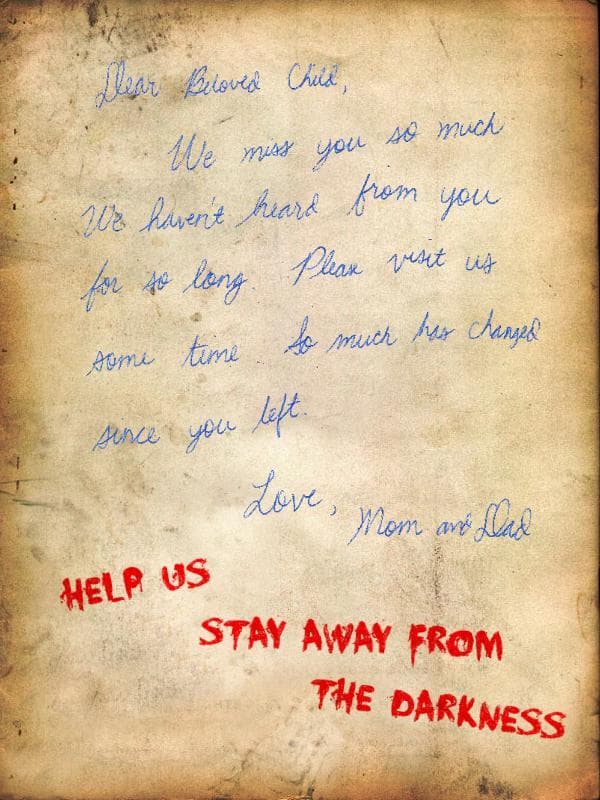 Dear Beloved Child,
We miss you so much
We haven't heard from you
for so long. Please visit us
some time So much has changed
since you left.
Love,
Mom and Dad
HELP US
STAY AWAY FROM
THE DARKNESS